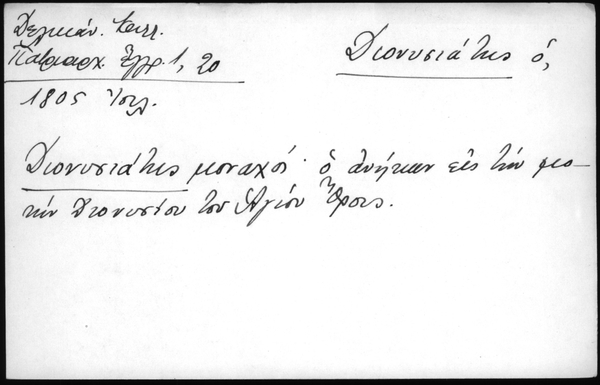 Δελικάν. Καλλ.
Πατριαρχ. Ἔγγρ. 1, 20
1805 Ἰουλ.
Διονυσιάτης ὁ,
Διονυσιάτης μοναχός· ὁ ἀνήκων εἰς τὴν μο-
νὴν Διονυσίου τοῦ Ἁγίου Ὄρους.